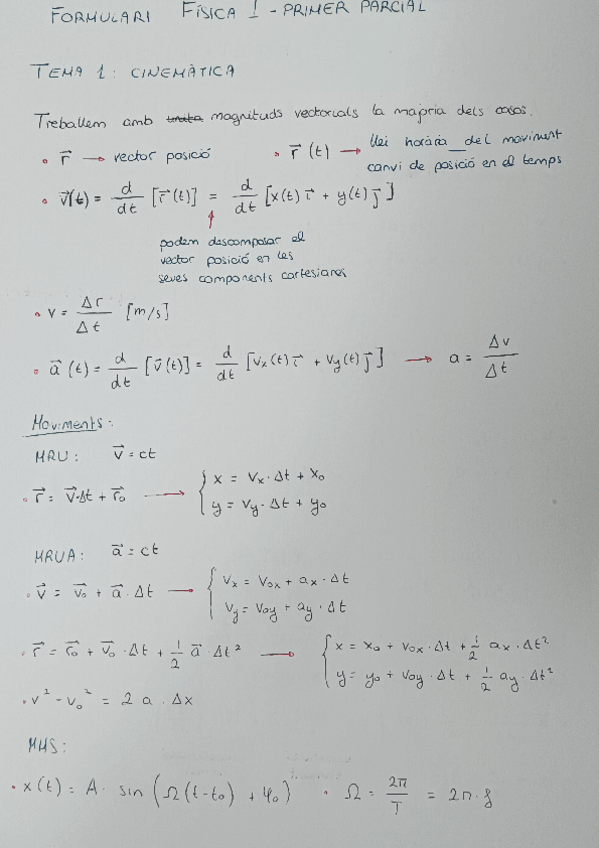 FORMULARI FÍSICA 1 - PRIMER PARCIAL
TEMA 1: CINEMÀTICA
Treballem amb magnituds vectorials la majoria dels casos.
• r⃗ → vector posició • r⃗ (t) → llei horària del moviment
canvi de posició en el temps
• v⃗(t) = d/dt [r⃗(t)] = d/dt [x(t) i⃗ + y(t) j⃗]
podem descomposar el
vector posició en les
seves components cartesianes
• v = Δr/Δt [m/s]
• a⃗ (t) = d/dt [v⃗(t)] = d/dt [vx(t) i⃗ + vy(t) j⃗] → a = Δv/Δt
Moviments:
MRU: v⃗ = ct
• r⃗ = v⃗·Δt + r⃗₀ → { x = vx · Δt + x₀
y = vy · Δt + y₀
MRUA: a⃗ = ct
• v⃗ = v⃗₀ + a⃗ · Δt → { vx = v₀x + ax · Δt
vy = v₀y + ay · Δt
• r⃗ = r⃗₀ + v⃗₀ · Δt + 1/2 a⃗ Δt² → { x = x₀ + v₀x · Δt + 1/2 ax · Δt²
y = y₀ + v₀y · Δt + 1/2 ay · Δt²
• v² - v₀² = 2 a · Δx
MHS:
• x(t) = A · sin (Ω(t-t₀) + φ₀) • Ω = 2π/T = 2π · f